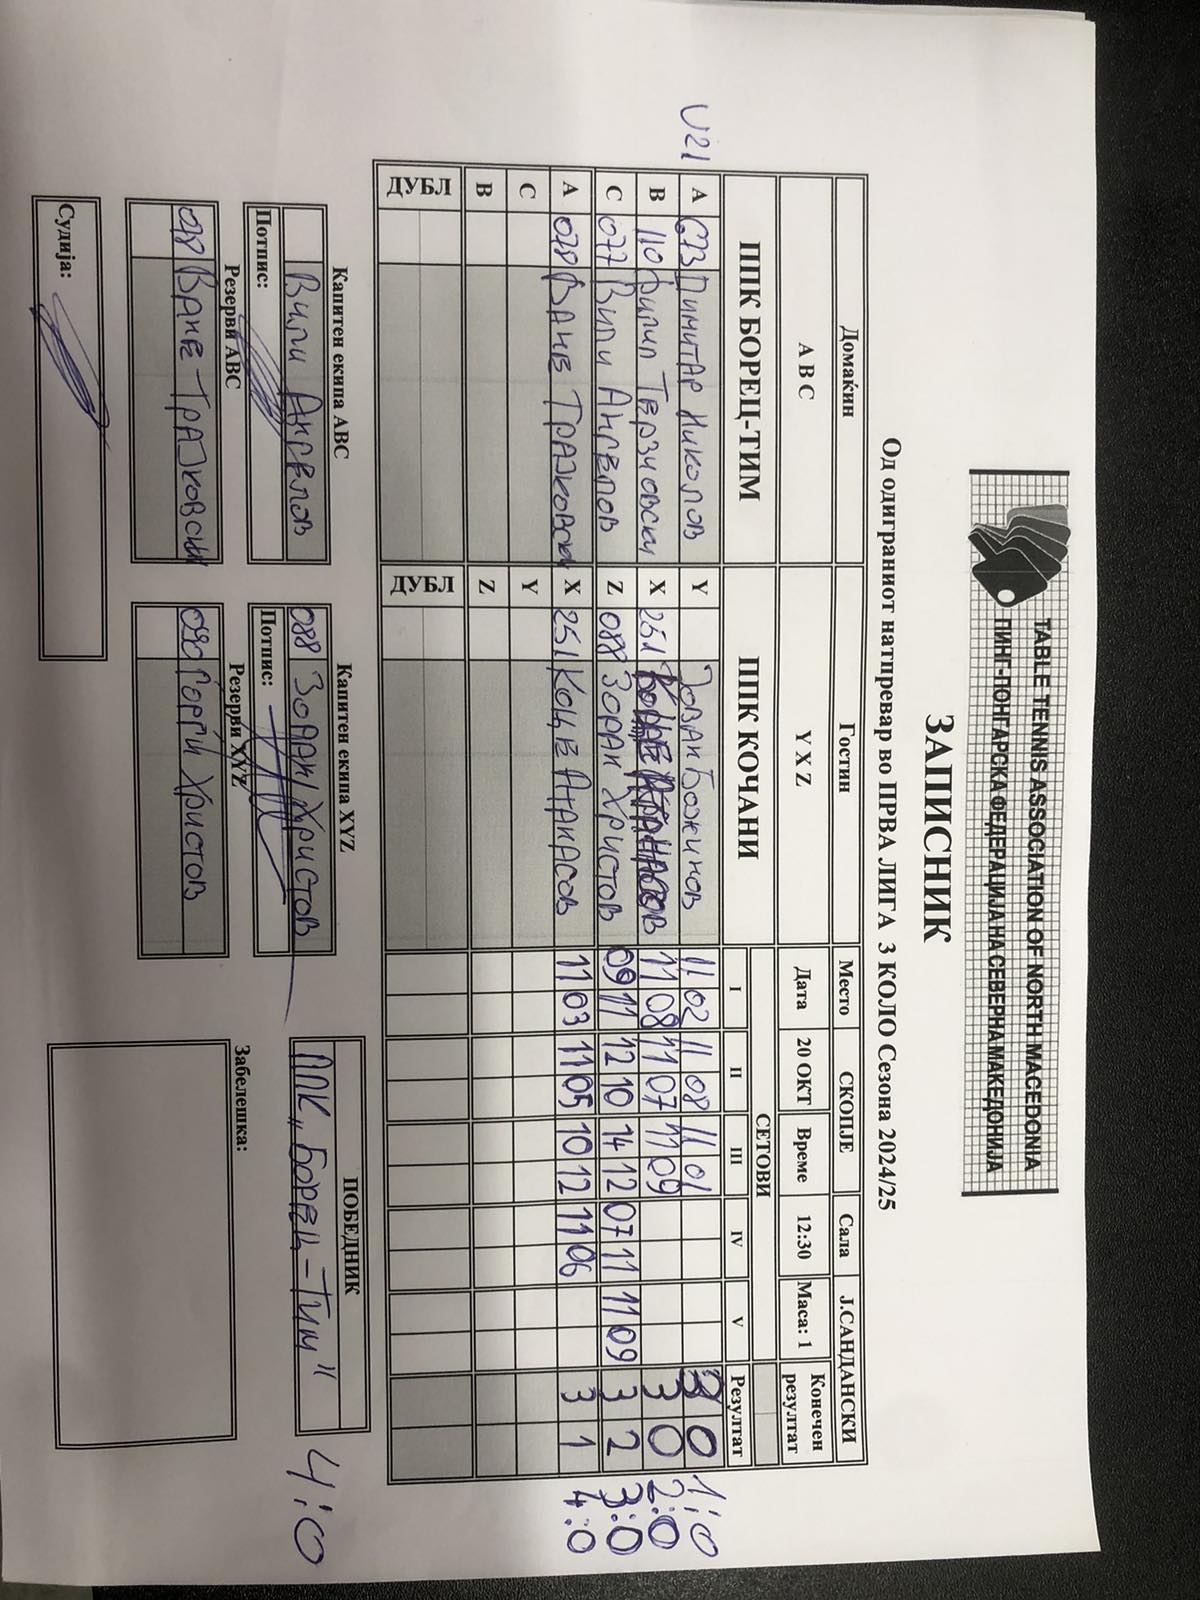 TABLE TENNIS ASSOCIATION OF NORTH MACEDONIA
ПИНГ-ПОНГАРСКА ФЕДЕРАЦИЈА НА СЕВЕРНА МАКЕДОНИЈА
ЗАПИСНИК
Од одиграниот натпревар во ПРВА ЛИГА 3 КОЛО Сезона 2024/25
Домаќин Гостин Место СКОПЈЕ Сала Ј.САНДАНСКИ
A B C Y X Z Дата 20 ОКТ Време 12:30 Маса: 1 Конечен резултат
ППК БОРЕЦ-ТИМ ППК КОЧАНИ СЕТОВИ
I II III IV V Резултат
U21 A Димитар Николов Y Јован Божинов 11 02 11 08 11 01 3 0 1:0
B 110 Филип Терзиовски X 251 11 08 11 07 11 09 3 0 2:0
C 077 Вили Ангелов Z 088 Зоран Христов 09 11 12 10 14 12 07 11 11 09 3 2 3:0
A 078 Ване Трајковски X 251 Коце Атанасов 11 03 11 05 10 12 11 06 3 1 4:0
C Y
B Z
ДУБЛ ДУБЛ
Капитен екипа ABC Капитен екипа XYZ ПОБЕДНИК
Вили Ангелов 088 Зоран Христов ППК „Борец-Тим“ 4:0
Потпис: Потпис:
Резерви ABC Резерви XYZ Забелешка:
078 Ване Трајковски 090 Ѓорѓи Христов
Судија: